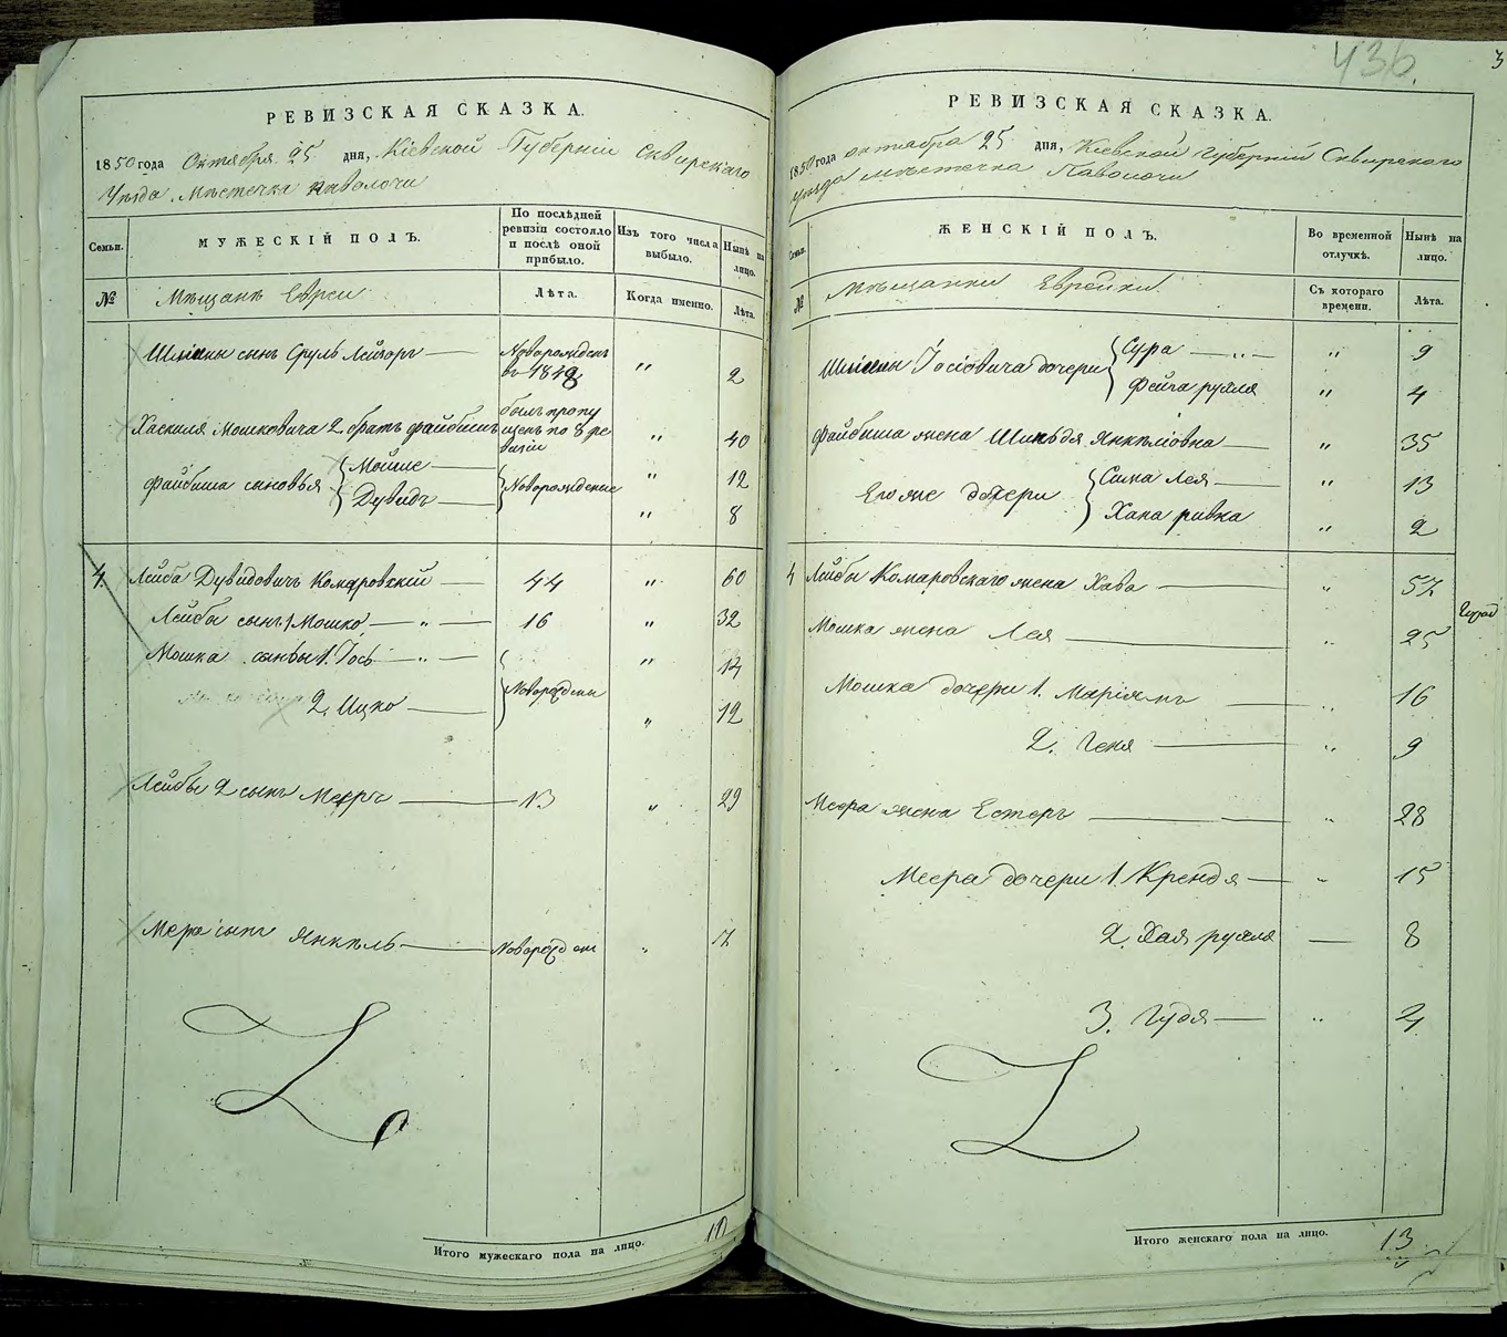 РЕВИЗСКАЯ СКАЗКА.
1850 года Октября 25 дня, Кіевской Губерніи Сквирскаго
Уезда Местечка Паволочи
Семьи.
МУЖЕСКІЙ ПОЛЪ.
По послѣдней ревизіи состояло и послѣ оной прибыло.
Изъ того числа выбыло.
Нынѣ на лицо.
№
Мещане Евреи
Лѣта.
Когда именно.
Лѣта.
сынъ Сруль Лейзоръ — Новорожденъ въ 1848 " 2
Хаскиля Мошковича 2 братъ Файбишъ былъ пропущенъ по 8 ревизіи " 40
Файбиша сыновья { Мойше — } Новорожденные " 12
Дувидъ — " 8
4. Лейба Дувидовичъ Комаровскій — 44 " 60
Лейбы сынъ 1 Мошко — " — 16 " 32
Мошка сыновья 1. Іось — " — Новорожденны " 14
2. Ицко — " 12
Лейбы 2 сынъ Мееръ — 13 " 29
Мера сынъ Янкель — Новорожден " 7
Итого мужескаго пола на лицо. 10
436
3
РЕВИЗСКАЯ СКАЗКА.
1850 года октября 25 дня, Кіевской Губерніи Сквирскаго
уезда местечка Паволочи
Семьи.
ЖЕНСКІЙ ПОЛЪ.
Во временной отлучкѣ.
Нынѣ на лицо.
№
Мещанки Еврейки
Съ котораго времени.
Лѣта.
Іосіовича дочери { Сура — " — " 9
Фейга рухля " 4
Файбиша жена Шиндля Янкеліовна — " 35
Его же дочери { Сима Лея — " 13
Хана ривка " 2
4 Лейбы Комаровскаго жена Хава — " 57
Мошка жена Лея — " 25
Мошка дочери 1. Маріямъ — " 16
2. Геня — " 9
Меера жена Естеръ — " 28
Меера дочери 1. Крендя — " 15
2. Хая рухля — 8
3. Гудя — " 4
Итого женскаго пола на лицо. 13